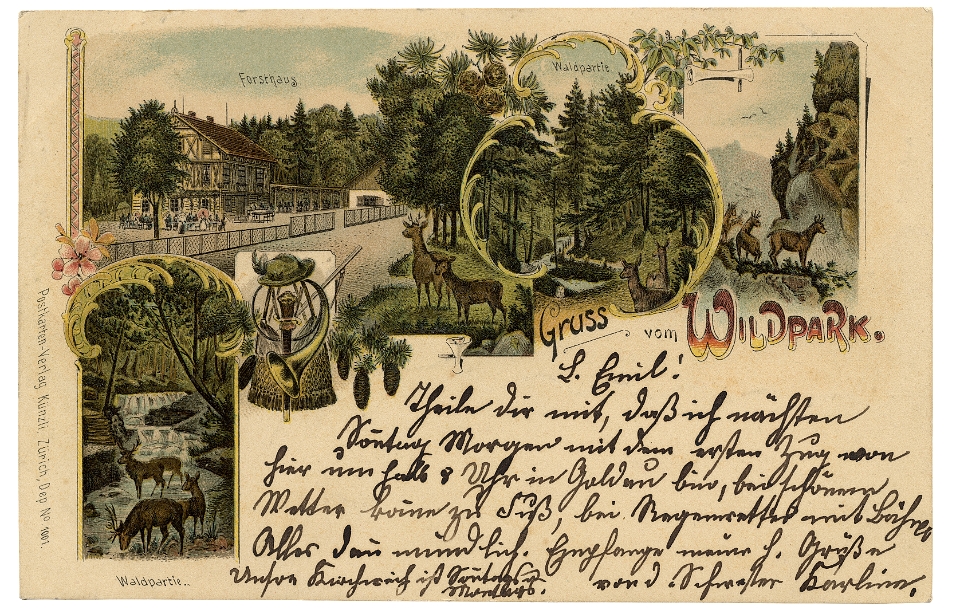 Forsthaus
Waldpartie
Gruss vom WILDPARK.
L. Emil!
Theile dir mit, daß ich nächsten
Sontag Morgen mit dem ersten Zug von
hier um halb 8 Uhr in Goldau bin, bei schönem
Wetter kome zu Fuß, bei Regenwetter mit
Alles dan mündlich. Empfange meine h. Grüße
Unsre ist Sontags &
Montags.
von d. Schwester Karline.
Waldpartie..
Postkarten-Verlag Künzli, Zürich, Dep. No 1001.